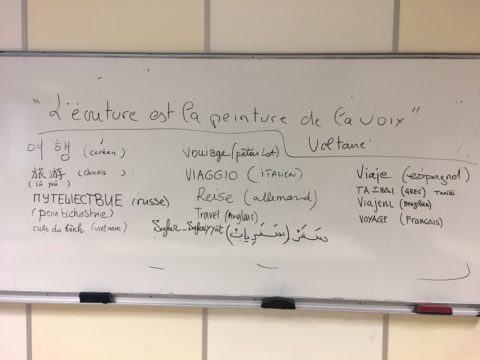 "L'écriture est la peinture de la voix"
Voltaire
여행 (coréen)
旅游 (chinois)
(lǚ yóu)
ПУТЕШЕСТВИЕ (russe)
(poutichestvie)
(vietnam)
vouiage (patois Lot)
VIAGGIO (ITALIEN)
Reise (allemand)
Travel (Anglais)
Safar - (سَفَرِيات) سَفَرْ
Viaje (espagnol)
ΤΑΞΙΔΙ (GREC) Taxidi
Viajem (Brésilien)
VOYAGE (Français)